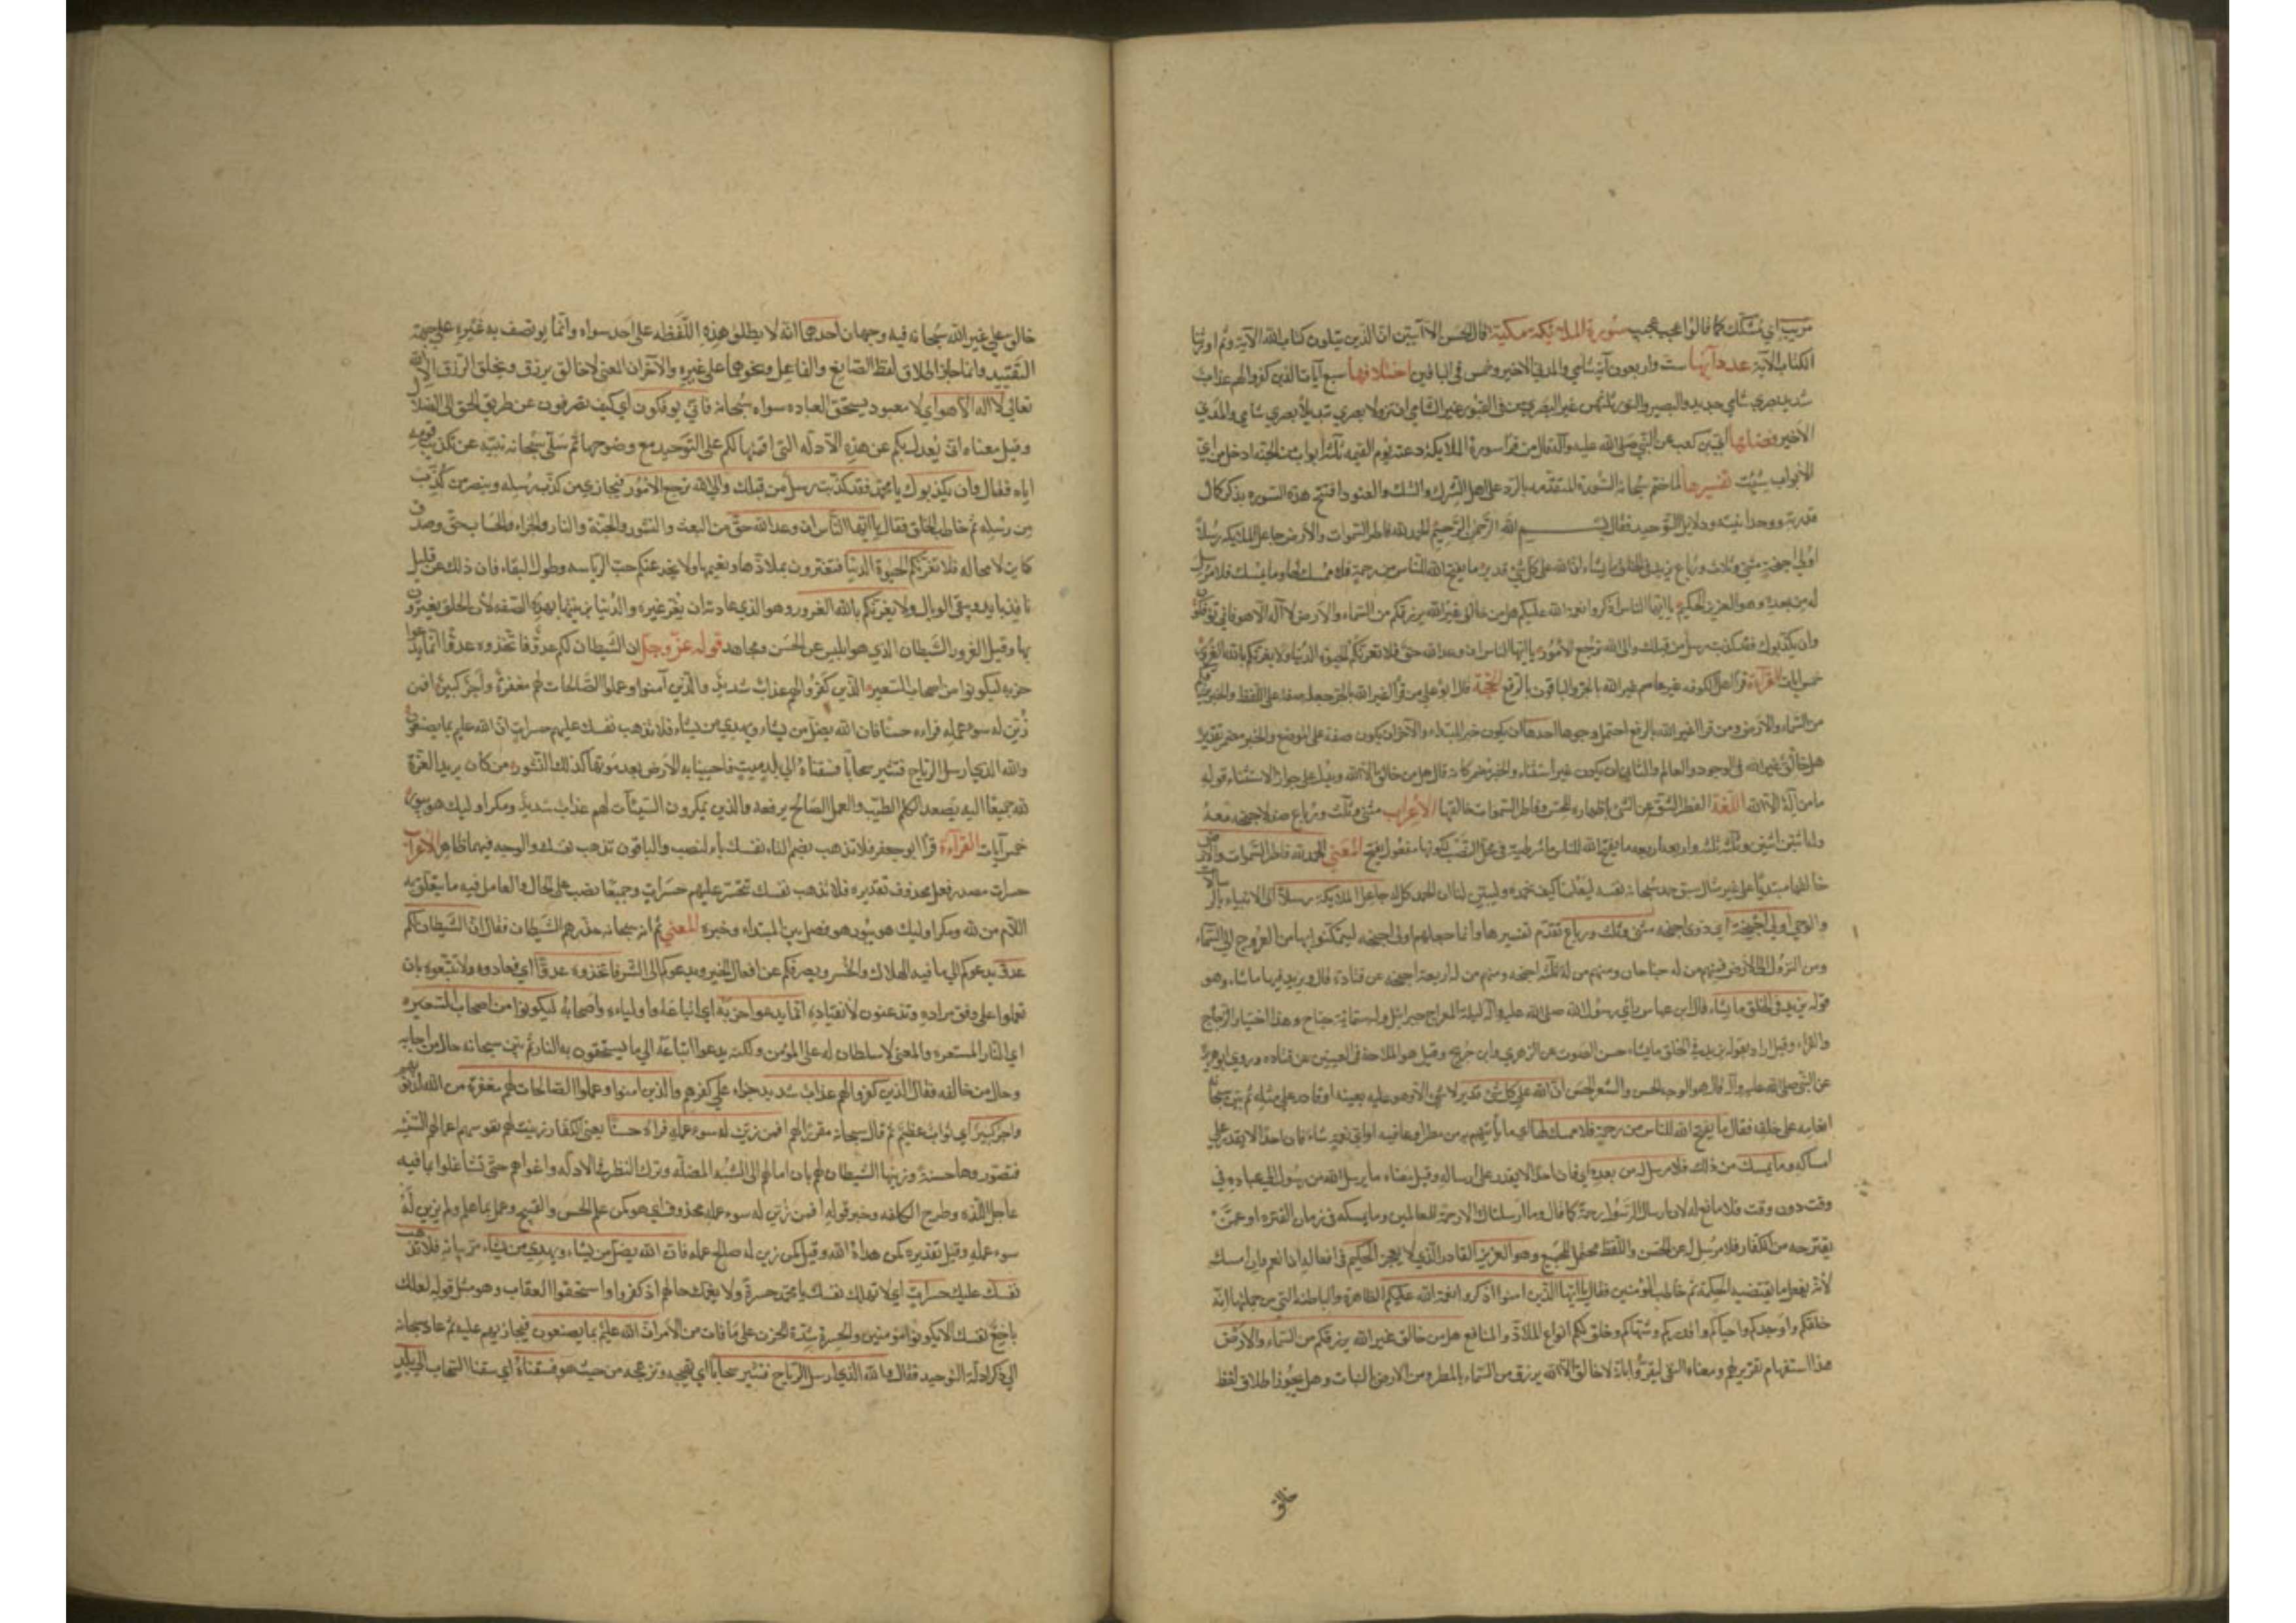 مريب اي مشكك كما قالوا عجب عجيب سورة الملائكة مكية قال الحسن الا آيتين ان الذين يتلون كتاب الله الآية وثم اورثنا
الكتاب الآية عدد آيها ست واربعون آية شامي والمدني الاخير وخمس في الباقين اختلافها سبع آيات الذين كفروا لهم عذاب
شديد بصري شامي جديد والبصير والنور ثلثهن غير البصري من في القبور غير الشامي ان تزولا بصري تبديلا بصري شامي والمدني
الاخير فضلها ابي بن كعب عن النبي صلى الله عليه وآله قال من قرأ سورة الملايكة دعته يوم القيمة ثلثة ابواب من الجنة ادخل من اي
الابواب شئت تفسيرها لما ختم سبحانه السورة المتقدمة بالرد على اهل الشرك والشك والعنود افتتح هذه السورة بذكر كمال
قدرته ووحدانيته ودلايل التوحيد فقال بسم الله الرحمن الرحيم الحمد لله فاطر السموات والارض جاعل الملايكة رسلا
اولي اجنحة مثنى وثلاث ورباع يزيد في الخلق ما يشاء ان الله على كل شئ قدير ما يفتح الله للناس من رحمة فلا ممسك لها وما يمسك فلا مرسل
له من بعده وهو العزيز الحكيم يا ايها الناس اذكروا نعمة الله عليكم هل من خالق غير الله يرزقكم من السماء والارض لا اله الا هو فاني توفكون
وان يكذبوك فقد كذبت رسل من قبلك والى الله ترجع الامور يا ايها الناس ان وعد الله حق فلا تغرنكم الحيوة الدنيا ولا يغرنكم بالله الغرور
خمس آيات القرآءة قرأ اهل الكوفة غير عاصم غير الله بالجر والباقون بالرفع الحجة قال ابو علي من قرأ غير الله بالجر جعله صفة على اللفظ والخبر يرزقكم
من السماء والارض ومن قرأ غير الله بالرفع احتمل وجوها احدها ان يكون خبر المبتداء والآخر ان يكون صفة على الموضع والخبر مضمر تقديره
هل خالق غير الله في الوجود والعالم والثالث ان يكون غير استثناء والخبر مضمر كانه قال هل من خالق الا الله ويدل على جواز الاستثناء قوله
ما من آله الا الله اللغة الفطر الشق عن الشئ باظهاره للحس وفاطر السموات خالقها الاعراب مثنى وثلث ورباع صفة لاجنحة معدولة
ولا اثنين اثنين وثلثة ثلثة واربعة اربعة ما يفتح الله للناس ما شرطية في محل النصب لكونها مفعول يفتح المعنى الحمد لله فاطر السموات والارض
خالقها مبتديا على غير مثال سبق حمد سبحانه نفسه ليعلمنا كيف نحمده وليبين لنا ان الحمد كله له جاعل الملايكة رسلا الى الانبياء بالرسالات
والوحي اولي اجنحة اي ذوي اجنحة مثنى وثلث ورباع تقدم تفسيرها وانما جعلهم اولي اجنحة ليتمكنوا بها من العروج الى السماء
ومن النزول الى الارض فمنهم من له جناحان ومنهم من له ثلثة اجنحة ومنهم من له اربعة اجنحة عن قتادة قال ويزيد فيها ما شاء وهو
قوله يزيد في الخلق ما يشاء قال ابن عباس رأي رسول الله صلى الله عليه وآله ليلة المعراج جبرائل وله ستماية جناح وهذا اختيار الزجاج
والفراء وقيل اراد بقوله يزيد في الخلق ما يشاء حسن الصوت عن الزهري وابن جريج وقيل هو الملاحة في العينين عن قتادة وروي ابو هريرة
عن النبي صلى الله عليه وآله قال هو الوجه الحسن والشعر الحسن ان الله على كل شئ قدير لا شئ الا وهو عليه بعينه او قادر على مثله ثم بين سبحانه
انعامه على خلقه فقال ما يفتح الله للناس من رحمة فلا ممسك لها اي ما يأتيهم به من مطر او عافية او اي نعمة شاء فان احدا لا يقدر على
امساكه وما يمسك من ذلك فلا مرسل له من بعده اي فان احدا لا يقدر على ارساله وقيل معناه ما يرسل الله من رسول الى عباده في
وقت دون وقت فلا مانع له لان ارسال الرسول رحمة كما قال وما ارسلناك الا رحمة للعالمين وما يمسكه في زمان الفترة او عمن
يقترحه من الكفار فلا مرسل له عن الحسن واللفظ محتمل للجميع وهو العزيز القادر الذي لا يعجز الحكيم في افعاله ان انعم وان امسك
لأنه يفعل ما يقتضيه الحكمة ثم خاطب المؤمنين فقال يا ايها الذين آمنوا اذكروا نعمة الله عليكم الظاهرة والباطنة التي من جملتها انه
خلقكم واوجدكم واحياكم واقدركم وشهاكم وخلق لكم انواع الملاذ والمنافع هل من خالق غير الله يرزقكم من السماء والارض
هذا استفهام تقرير لهم ومعناه النفي ليقروا بانه لا خالق الا الله يرزق من السماء بالمطر ومن الارض بالنبات وهل يجوز اطلاق لفظ
خالق
خالق على غير الله سبحانه فيه وجهان احدهما انه لا يطلق هذه اللفظة على احد سواه وانما يوصف به غيره على جهة
التقييد وانما جاز اطلاق لفظ الصانع والفاعل ونحوهما على غيره والآخر ان المعنى لا خالق يرزق ويخلق الرزق الا الله
تعالى لا اله الا هو اي لا معبود يستحق العبادة سواه سبحانه فاني يوفكون اي كيف تصرفون عن طريق الحق الى الضلال
وقيل معناه اني يعدل بكم عن هذه الادلة التي اقمتها لكم على التوحيد مع وضوحها ثم سلى سبحانه نبيه عن تكذيب قومه
اياه فقال وان يكذبوك يا محمد فقد كذبت رسل من قبلك والى الله ترجع الامور فيجازي من كذب رسله وينصر من كذب
من رسله ثم خاطب الخلق فقال يا ايها الناس ان وعد الله حق من البعث والنشور والجنة والنار والجزاء والحساب حق وصدق
كاين لا محالة فلا تغرنكم الحيوة الدنيا فتغترون بملاذها ونعيمها ولا يخدعنكم حب الرياسة وطول البقاء فان ذلك عن قليل
نافذ بايد ويبقى الوبال ولا يغرنكم بالله الغرور وهو الذي عادته ان يغر غيره والدنيا وزينتها بهذه الصفة لأن الخلق يغترون
بها وقيل الغرور الشيطان الذي هو ابليس عن الحسن ومجاهد قوله عز وجل ان الشيطان لكم عدو فاتخذوه عدوا انما يدعوا
حزبه ليكونوا من اصحاب السعير الذين كفروا لهم عذاب شديد والذين آمنوا وعملوا الصالحات لهم مغفرة واجر كبير افمن
زين له سوء عمله فراءه حسنا فان الله يضل من يشاء ويهدي من يشاء فلا تذهب نفسك عليهم حسرات ان الله عليم بما يصنعون
والله الذي ارسل الرياح فتثير سحابا فسقناه الى بلد ميت فاحيينا به الارض بعد موتها كذلك النشور من كان يريد العزة
لله جميعا اليه يصعد الكلم الطيب والعمل الصالح يرفعه والذين يمكرون السيئآت لهم عذاب شديد ومكر اوليك هو يبور
خمس آيات القرآءة قرأ ابو جعفر فلا تذهب بضم التاء نفسك بالنصب والباقون تذهب نفسك والوجه فيهما ظاهر الاعراب
حسرات مصدر فعل محذوف تقديره فلا تذهب نفسك تتحسر عليهم حسرات وجميعا نصب على الحال والعامل فيه ما يتعلق به
اللام من لله ومكر اوليك هو يبور هو فصل بين المبتداء وخبره المعنى ثم انه سبحانه حذرهم الشيطان فقال ان الشيطان لكم
عدو يدعوكم الى ما فيه الهلاك والخسر ويصرفكم عن افعال الخير ويدعوكم الى الشر فاتخذوه عدوا اي فعادوه ولا تتبعوه بان
تعملوا على وفق مراده وتذعنون لانقياده انما يدعوا حزبه اي اتباعه واولياءه واصحابه ليكونوا من اصحاب السعير
اي النار المستعرة والمعنى لا سلطان له على المؤمن ولكنه يدعوا اتباعه الى ما يستحقون به النار ثم بين سبحانه حال من اجابه
وحال من خالفه فقال الذين كفروا لهم عذاب شديد جزاء على كفرهم والذين آمنوا وعملوا الصالحات لهم مغفرة من الله لذنوبهم
واجر كبير اي ثواب عظيم ثم قال سبحانه مقررا لهم افمن زين له سوء عمله فراه حسنا يعني الكفار زينت لهم نفوسهم اعمالهم السيئة
فتصوروها حسنة وزينها الشيطان لهم بان امالهم الى الشبه المضلة وترك النظر في الادلة واغواهم حتى تشاغلوا بما فيه
عاجل اللذة وطرح الكلفة وخبر قوله افمن زين له سوء عمله محذوف اي هو كمن علم الحسن والقبيح وعمل بما علم ولم يزين له
سوء عمله وقيل تقديره كمن هداه الله وقيل كمن زين له صالح عمله فان الله يضل من يشاء ويهدي من يشاء مر بيانه فلا تذهب
نفسك عليك حسرات اي لا تهلك نفسك يا محمد حسرة ولا يغمك حالهم اذ كفروا واستحقوا العقاب وهو مثل قوله لعلك
باخع نفسك الا يكونوا مؤمنين والحسرة شدة الحزن على ما فات من الامر ان الله عليم بما يصنعون فيجازيهم عليه ثم عاد سبحانه
الى ذكر ادلة التوحيد فقال والله الذي ارسل الرياح فتثير سحابا اي تهيجه وتزعجه من حيث هو فسقناه اي سقنا السحاب الى بلد